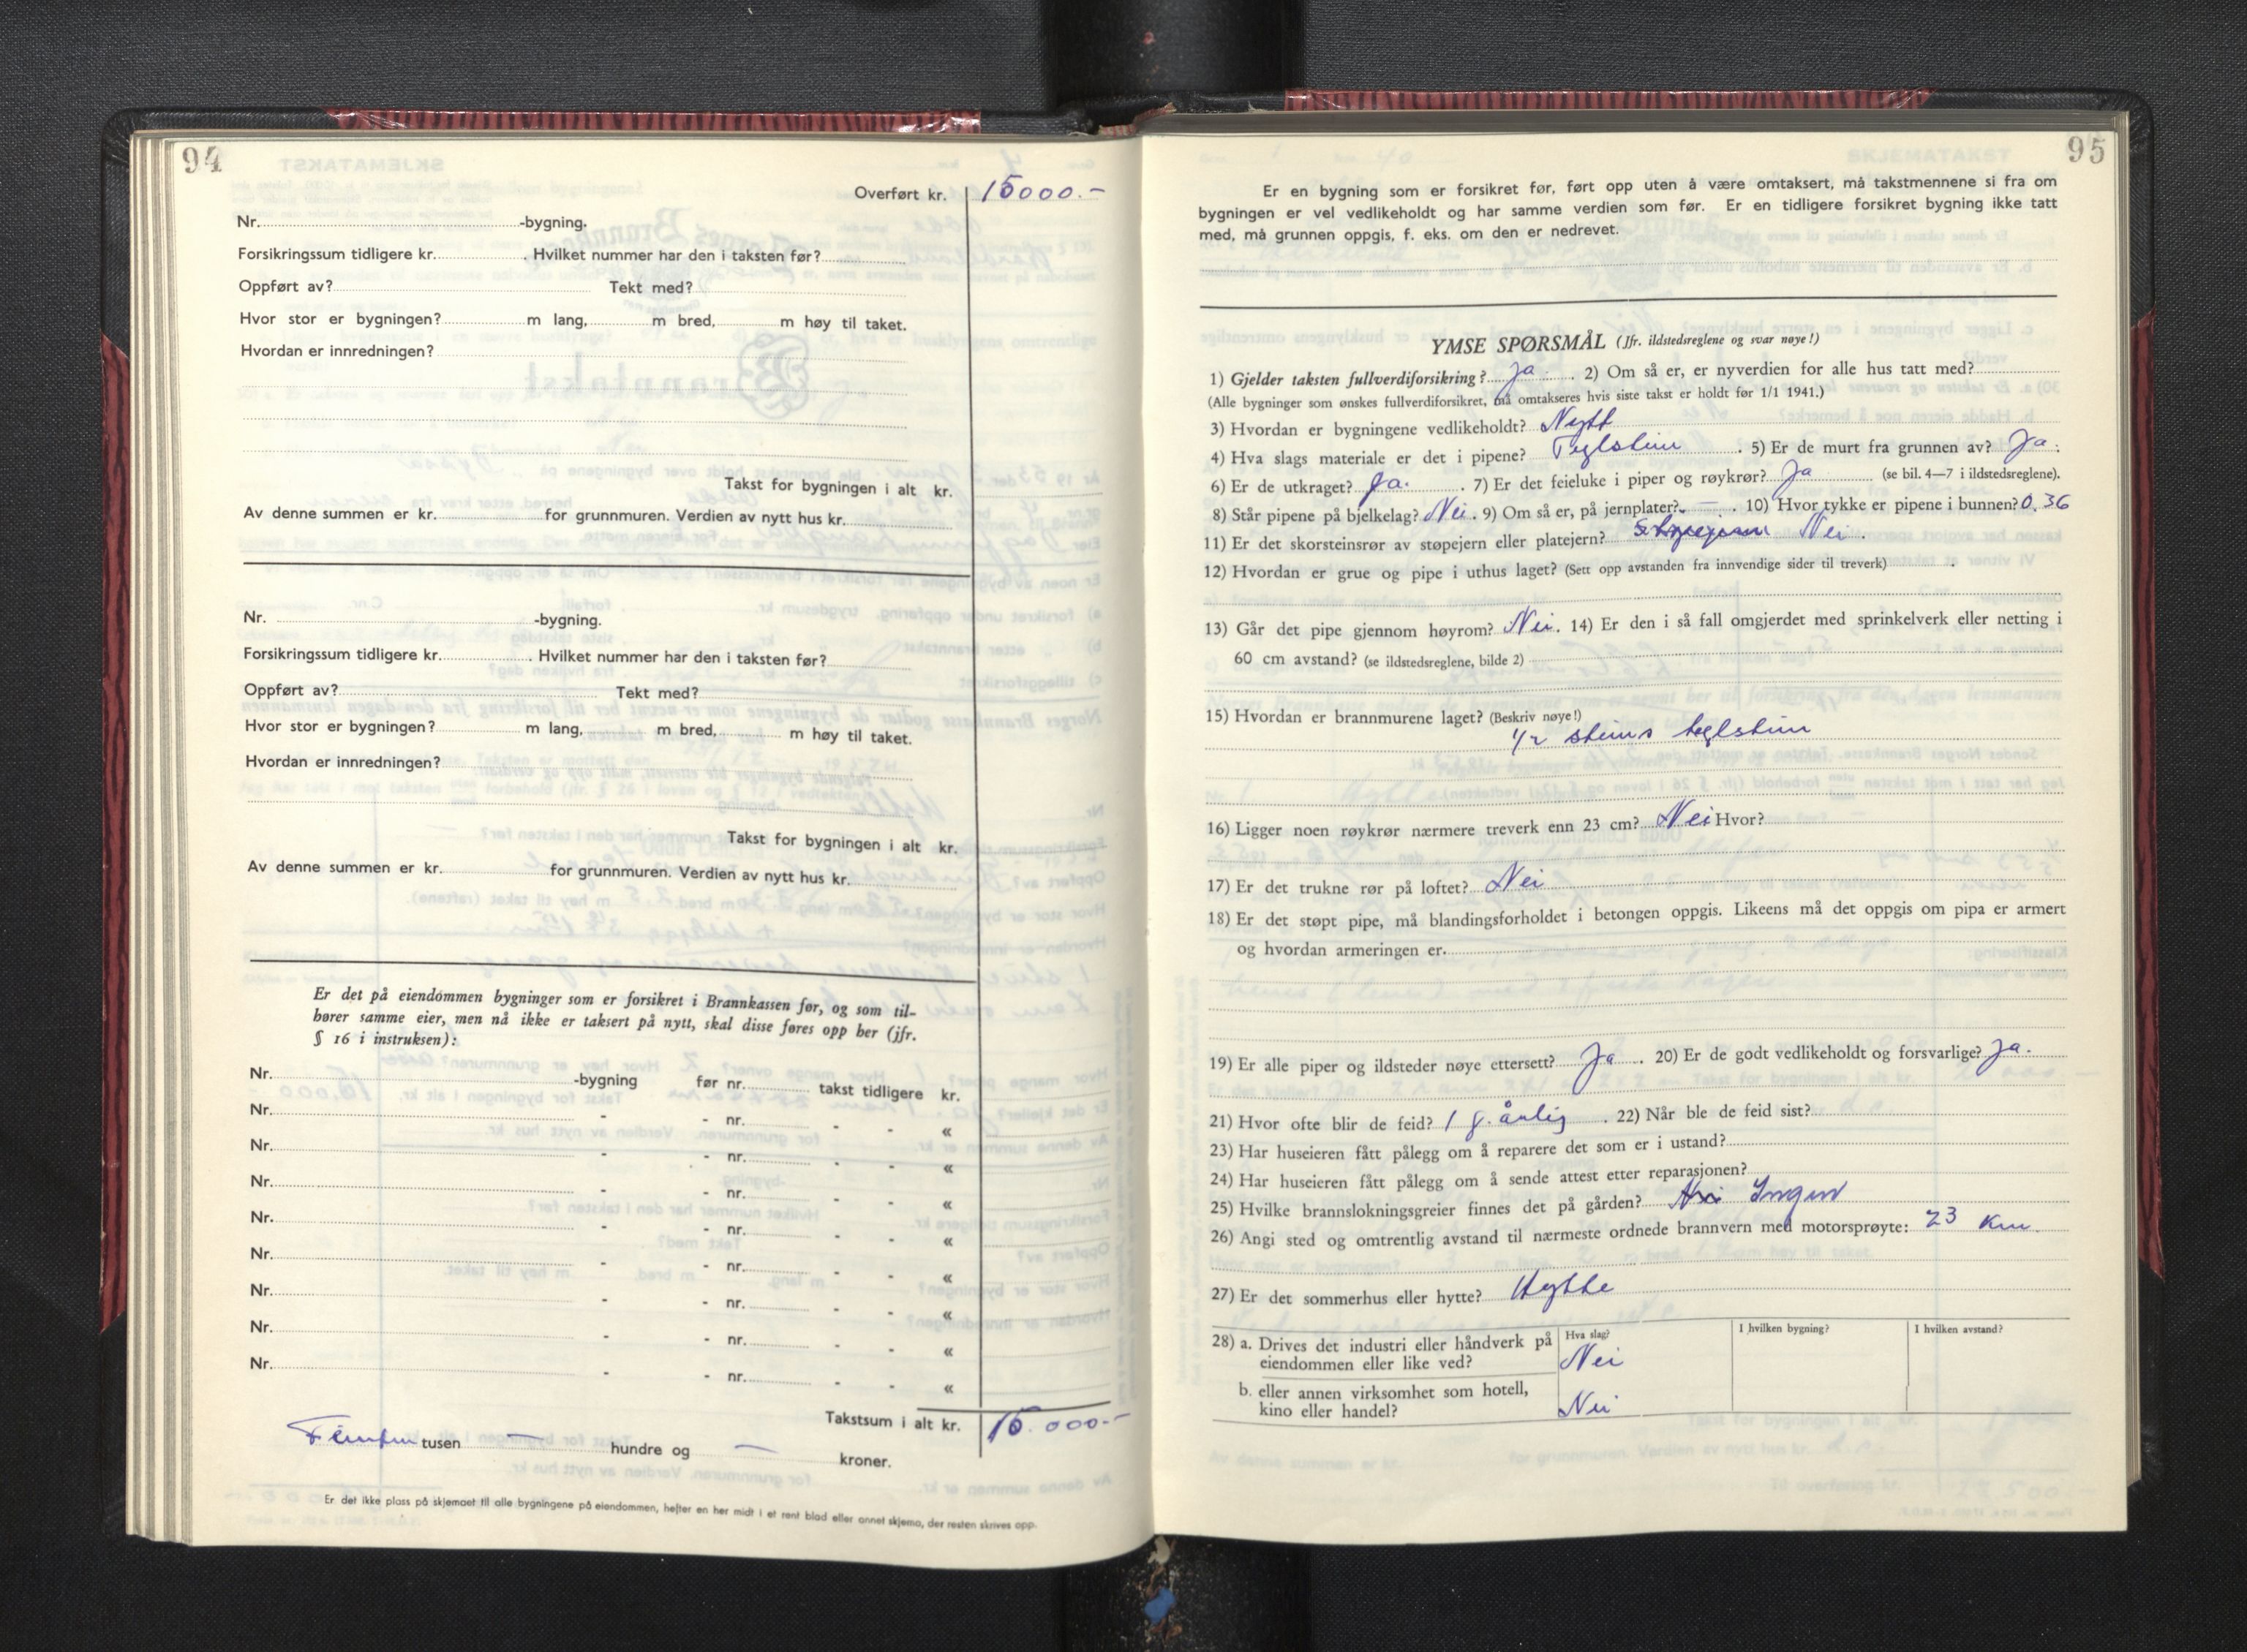 94
Overført kr. 15000.-
Nr. -bygning.
Forsikringssum tidligere kr. . Hvilket nummer har den i taksten før?
Oppført av? Tekt med?
Hvor stor er bygningen? m lang, m bred, m høy til taket.
Hvordan er innredningen?
Takst for bygningen i alt kr.
Av denne summen er kr. for grunnmuren. Verdien av nytt hus kr.
Nr. -bygning.
Forsikringssum tidligere kr. . Hvilket nummer har den i taksten før?
Oppført av? Tekt med?
Hvor stor er bygningen? m lang, m bred, m høy til taket.
Hvordan er innredningen?
Takst for bygningen i alt kr.
Av denne summen er kr. for grunnmuren. Verdien av nytt hus kr.
Er det på eiendommen bygninger som er forsikret i Brannkassen før, og som til-
hører samme eier, men nå ikke er taksert på nytt, skal disse føres opp her (jfr.
§ 16 i instruksen):
Nr. -bygning før nr. takst tidligere kr.
Nr. - - nr. - - «
Nr. - - nr. - - «
Nr. - - nr. - - «
Nr. - - nr. - - «
Nr. - - nr. - - «
Nr. - - nr. - - «
Nr. - - nr. - - «
Nr. - - nr. - - «
Takstsum i alt kr. 15.000.-
Femten tusen — hundre og — kroner.
Er det ikke plass på skjemaet til alle bygningene på eiendommen, hefter en her midt i et rent blad eller annet skjema, der resten skrives opp.
95
Er en bygning som er forsikret før, ført opp uten å være omtaksert, må takstmennene si fra om
bygningen er vel vedlikeholdt og har samme verdien som før. Er en tidligere forsikret bygning ikke tatt
med, må grunnen oppgis, f. eks. om den er nedrevet.
YMSE SPØRSMÅL (Jfr. ildstedsreglene og svar nøye!)
1) Gjelder taksten fullverdiforsikring? Ja . 2) Om så er, er nyverdien for alle hus tatt med?
(Alle bygninger som ønskes fullverdiforsikret, må omtakseres hvis siste takst er holdt før 1/1 1941.)
3) Hvordan er bygningene vedlikeholdt? Nytt
4) Hva slags materiale er det i pipene? Teglstein . 5) Er de murt fra grunnen av? Ja.
6) Er de utkraget? Ja. . 7) Er det feieluke i piper og røykrør? Ja (se bil. 4—7 i ildstedsreglene).
8) Står pipene på bjelkelag? Nei . 9) Om så er, på jernplater? — . 10) Hvor tykke er pipene i bunnen? 0.36
11) Er det skorsteinsrør av støpejern eller platejern? Nei .
12) Hvordan er grue og pipe i uthus laget? (Sett opp avstanden fra innvendige sider til treverk) .
13) Går det pipe gjennom høyrom? Nei. 14) Er den i så fall omgjerdet med sprinkelverk eller netting i
60 cm avstand? (se ildstedsreglene, bilde 2)
15) Hvordan er brannmurene laget? (Beskriv nøye!)
1/2 steins teglstein
16) Ligger noen røykrør nærmere treverk enn 23 cm? Nei Hvor?
17) Er det trukne rør på loftet? Nei
18) Er det støpt pipe, må blandingsforholdet i betongen oppgis. Likeens må det oppgis om pipa er armert
og hvordan armeringen er.
19) Er alle piper og ildsteder nøye ettersett? Ja . 20) Er de godt vedlikeholdt og forsvarlige? Ja.
21) Hvor ofte blir de feid? 1 g. årlig . 22) Når ble de feid sist?
23) Har huseieren fått pålegg om å reparere det som er i ustand?
24) Har huseieren fått pålegg om å sende attest etter reparasjonen?
25) Hvilke brannslokningsgreier finnes det på gården? Ingen
26) Angi sted og omtrentlig avstand til nærmeste ordnede brannvern med motorsprøyte: 23 km
27) Er det sommerhus eller hytte? Hytte
28) a. Drives det industri eller håndverk på eiendommen eller like ved? Hva slag? Nei I hvilken bygning? I hvilken avstand?
b. eller annen virksomhet som hotell, kino eller handel? Nei